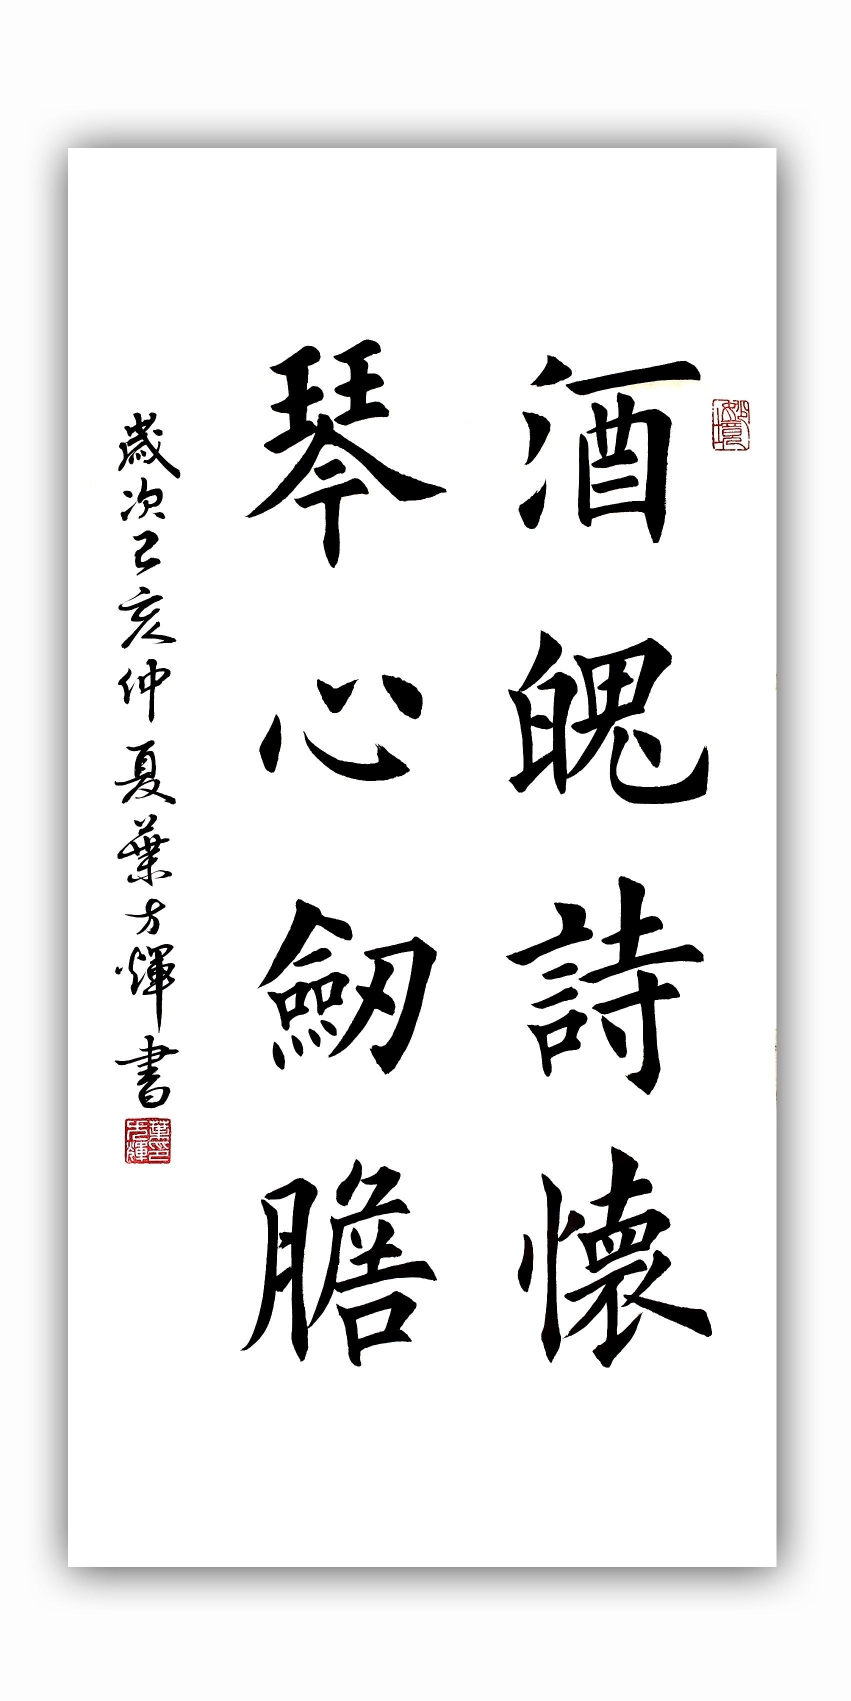 酒魄詩懷
琴心劒膽
歲次己亥仲夏葉方煇書